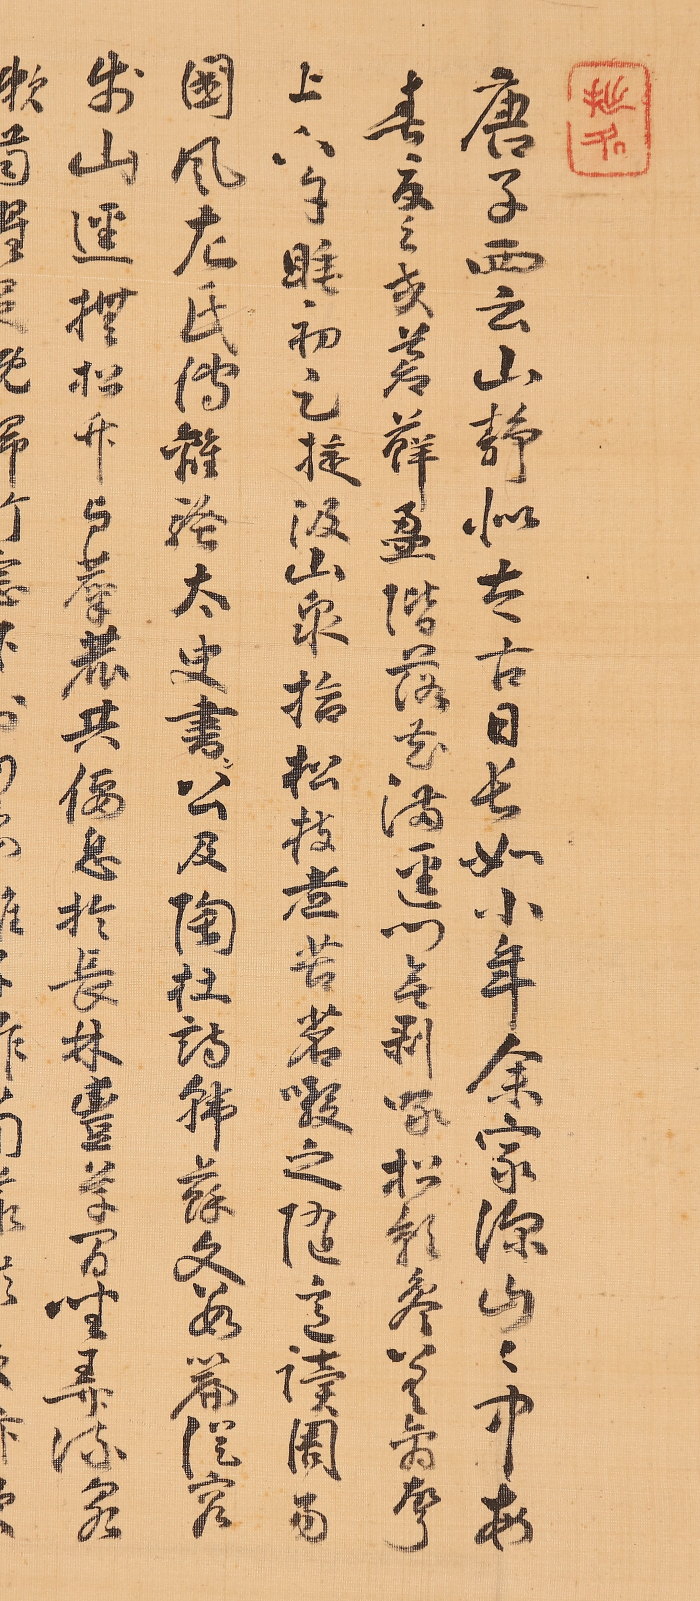 唐子西云山靜似太古日長如小年余家深山之中每
春夏之交蒼蘚盈階落花滿逕門無剥啄松影參差禽聲
上下午睡初足旋汲山泉拾松枝煮苦茗啜之隨意讀周易
國風左氏傳離騷太史書公及陶杜詩韓蘇文數篇從容
步山逕撫松竹与共偃息於長林豐草間坐弄流泉
漱齒濯足既歸竹窓下